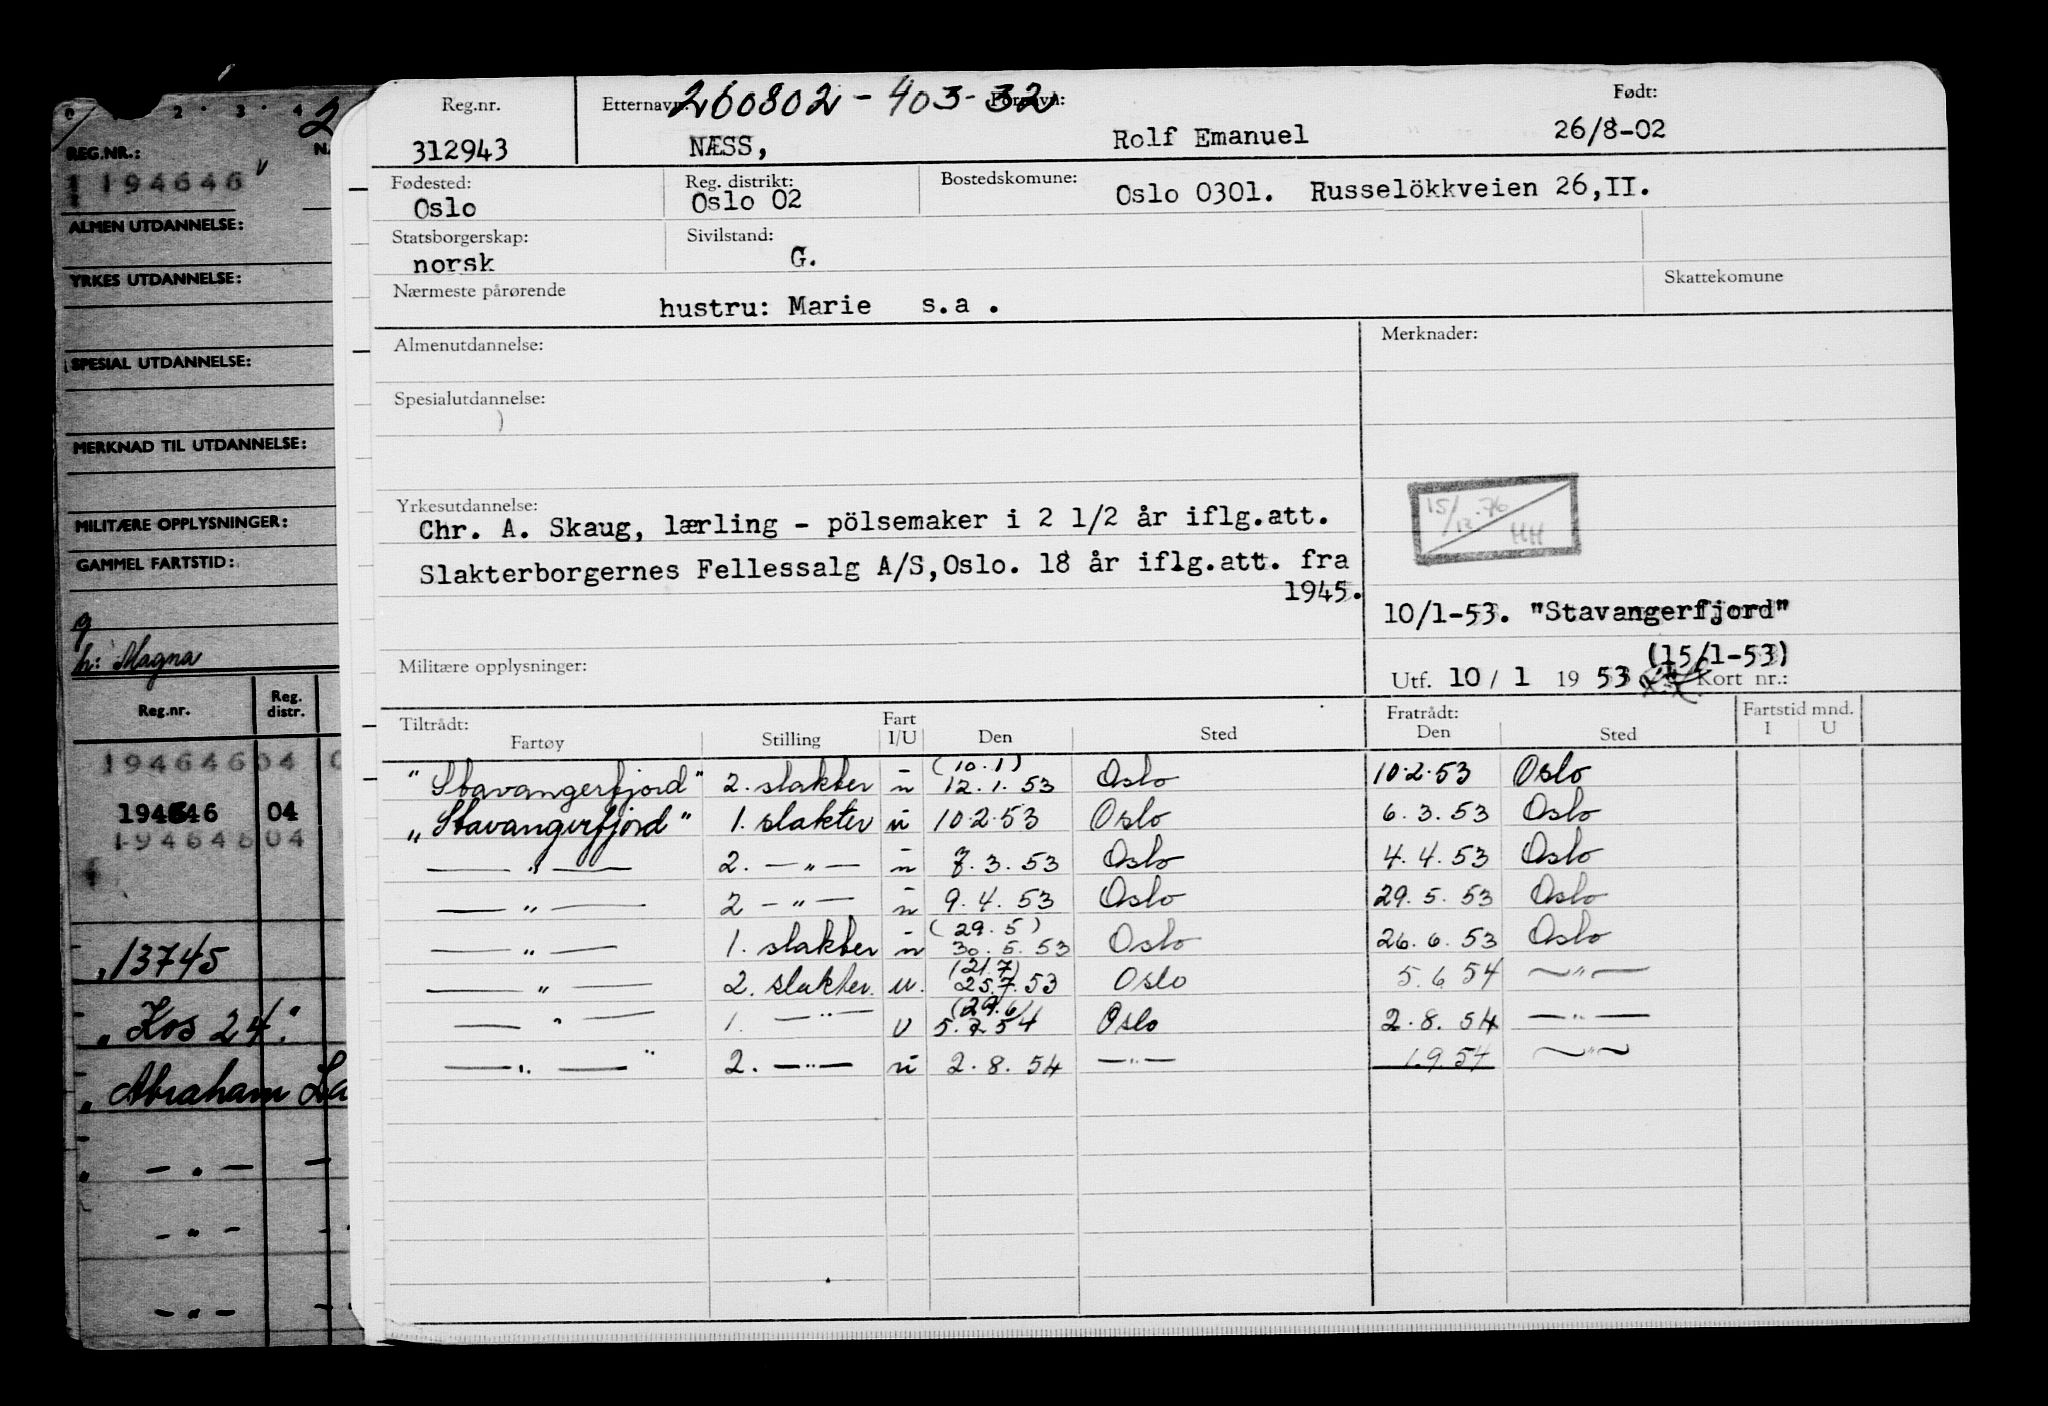 0 2 · 3 · 4
2
REG.NR.:
194646 v
ALMEN UTDANNELSE:
YRKES UTDANNELSE:
SPESIAL UTDANNELSE:
MERKNAD TIL UTDANNELSE:
MILITÆRE OPPLYSNINGER:
GAMMEL FARTSTID:
g
h: Magna
Reg.nr. Reg. distr.
194646 04
194646 04
194646 04
"13745
"Kos 24".
" Abraham La
" — " — —
— " —
— " — —
Reg.nr. Etternavn: 260802 - 403-32 Fornavn: Født:
312943 NÆSS, Rolf Emanuel 26/8-02
Fødested: Reg. distrikt: Bostedskomune:
Oslo Oslo 02 Oslo 0301. Russelökkveien 26,II.
Statsborgerskap: Sivilstand:
norsk G.
Nærmeste pårørende Skattekomune
hustru: Marie s.a .
Almenutdannelse: Merknader:
Spesialutdannelse:
)
15/12.76
HH
Yrkesutdannelse:
Chr. A. Skaug, lærling - pölsemaker i 2 1/2 år iflg.att.
Slakterborgernes Fellessalg A/S,Oslo. 18 år iflg.att. fra
1945.
10/1-53. "Stavangerfjord"
(15/1-53)
Militære opplysninger: Utf. 10 / 1 19 53 Kort nr.:
Tiltrådt: Fart Fratrådt: Fartstid mnd.
Fartøy Stilling I/U Den Sted Den Sted I U
"Stavangerfjord" 2. slakter u (10.1) 12.1.53 Oslo 10.2.53 Oslo
"Stavangerfjord" 1. slakter u 10.2.53 Oslo 6.3.53 Oslo
— " — 2. — " — u 7.3.53 Oslo 4.4.53 Oslo
— " — 2 — " — u 9.4.53 Oslo 29.5.53 Oslo
— " — 1. slakter u (29.5) 30.5.53 Oslo 26.6.53 Oslo
— " — 2. slakter. u. (21.7) 25.7.53 Oslo 5.6.54 — " —
— " — 1. — " — U (29.6) 5.7.54 Oslo 2.8.54 — " —
— " — 2. — " — u 2.8.54 — " — 1.9.54 — " —